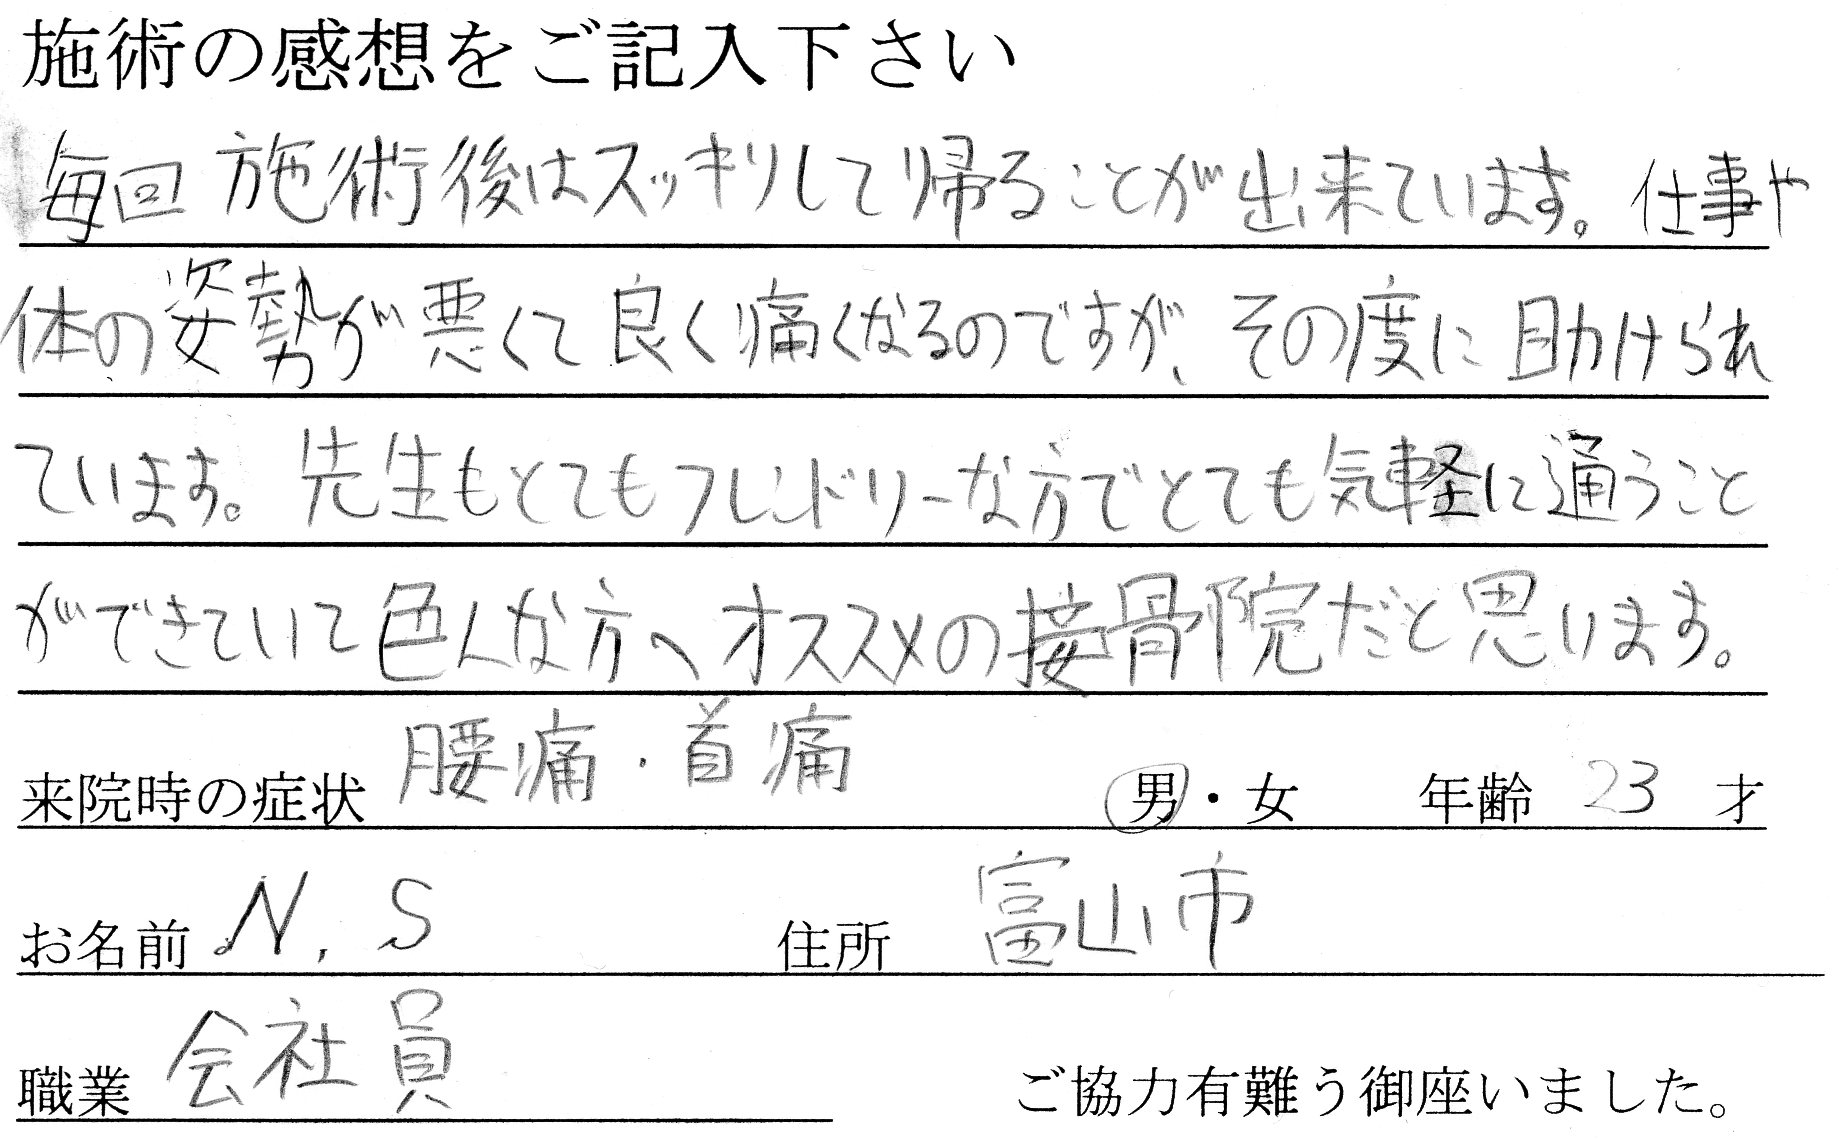 施術の感想をご記入下さい
毎回施術後はスッキリして帰ることが出来ています。仕事や
体の姿勢が悪くて良く痛くなるのですが、その度に助けられ
ています。先生もとてもフレンドリーな方でとても気軽に通うこと
ができていて色んな方へオススメの接骨院だと思います。
来院時の症状 腰痛・首痛 男・女 年齢 23 才
お名前 N.S 住所 富山市
職業 会社員 ご協力有難う御座いました。